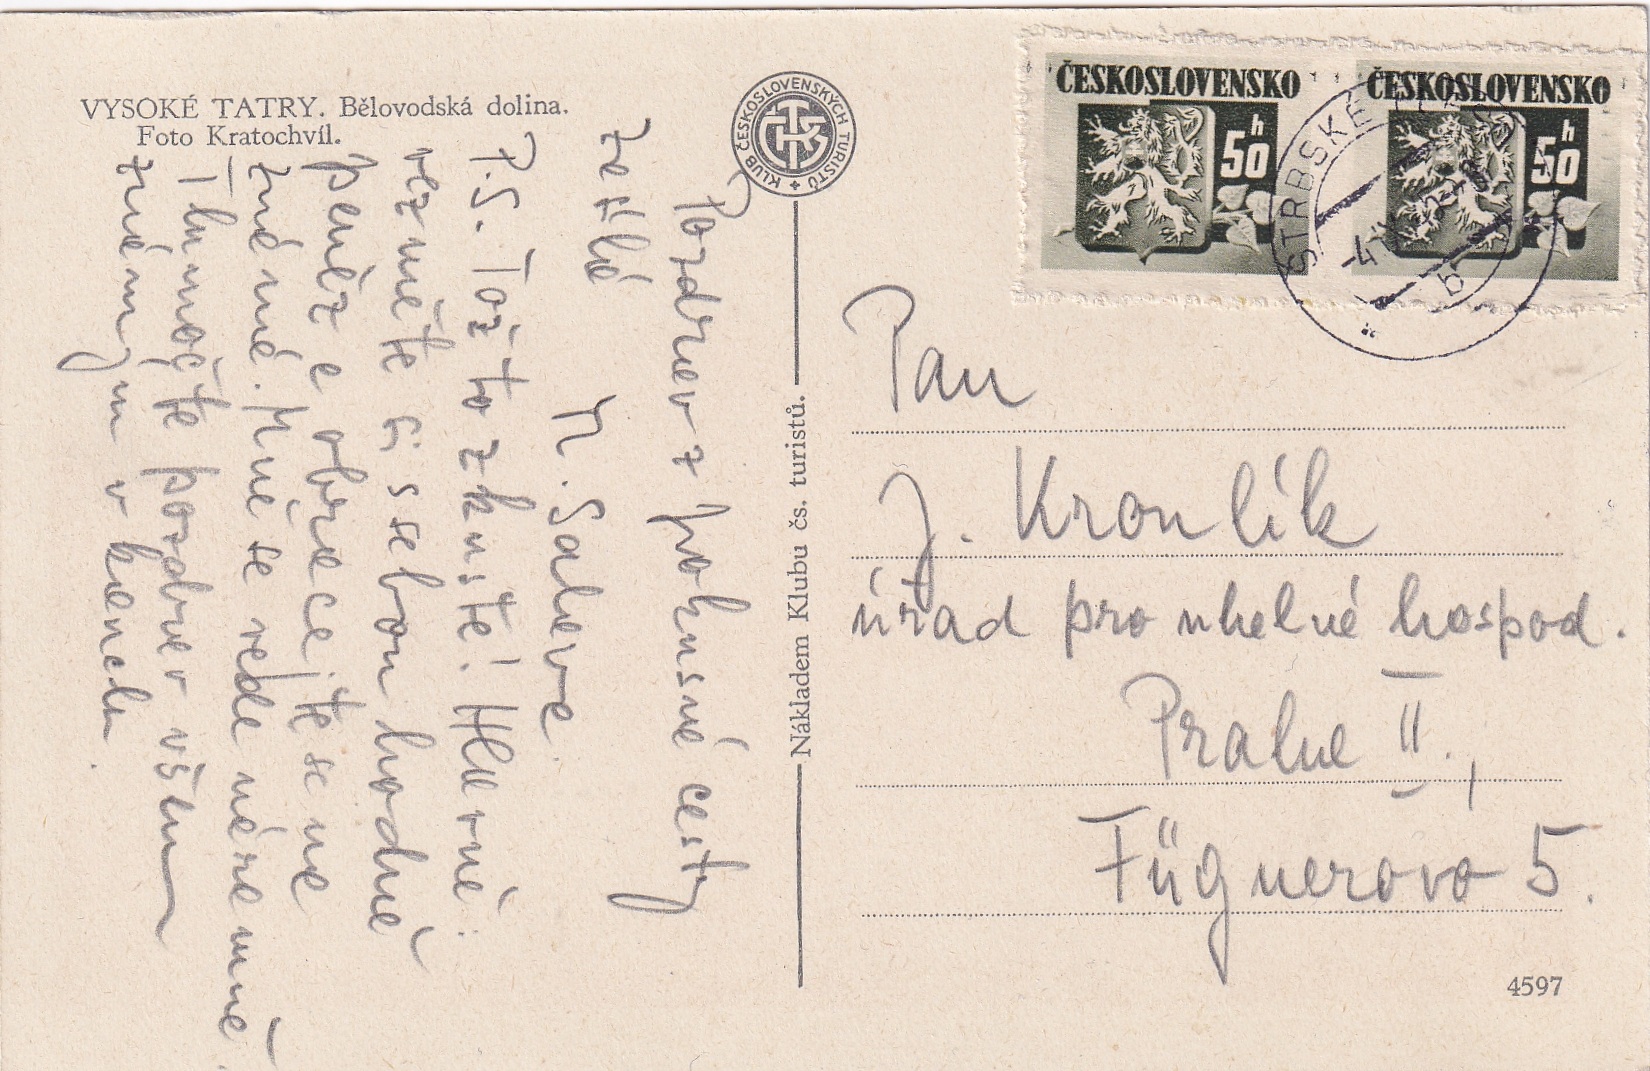 VYSOKÉ TATRY. Bělovodská dolina.
Foto Kratochvíl.
KLUB ČESKOSLOVENSKÝCH TURISTŮ
KČT
Pozdrav z pokusné cesty
zasílá
P.S. Tož to zkuste! Hlavně
vezměte si s sebou hodně
peněz a obracejte se na
známé. Mně se vede náramně
Tlumočte pozdrav všem
známým v kanclu.
Nákladem Klubu čs. turistů.
ČESKOSLOVENSKO
50 h
ČESKOSLOVENSKO
50 h
ŠTRBSKÉ
Pan
J. Kronlík
úřad pro uhelné hospod.
Praha II.,
Fügnerovo 5.
4597